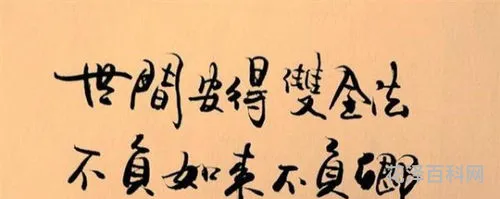 世間安得雙全法
不負如来不負卿
百科网